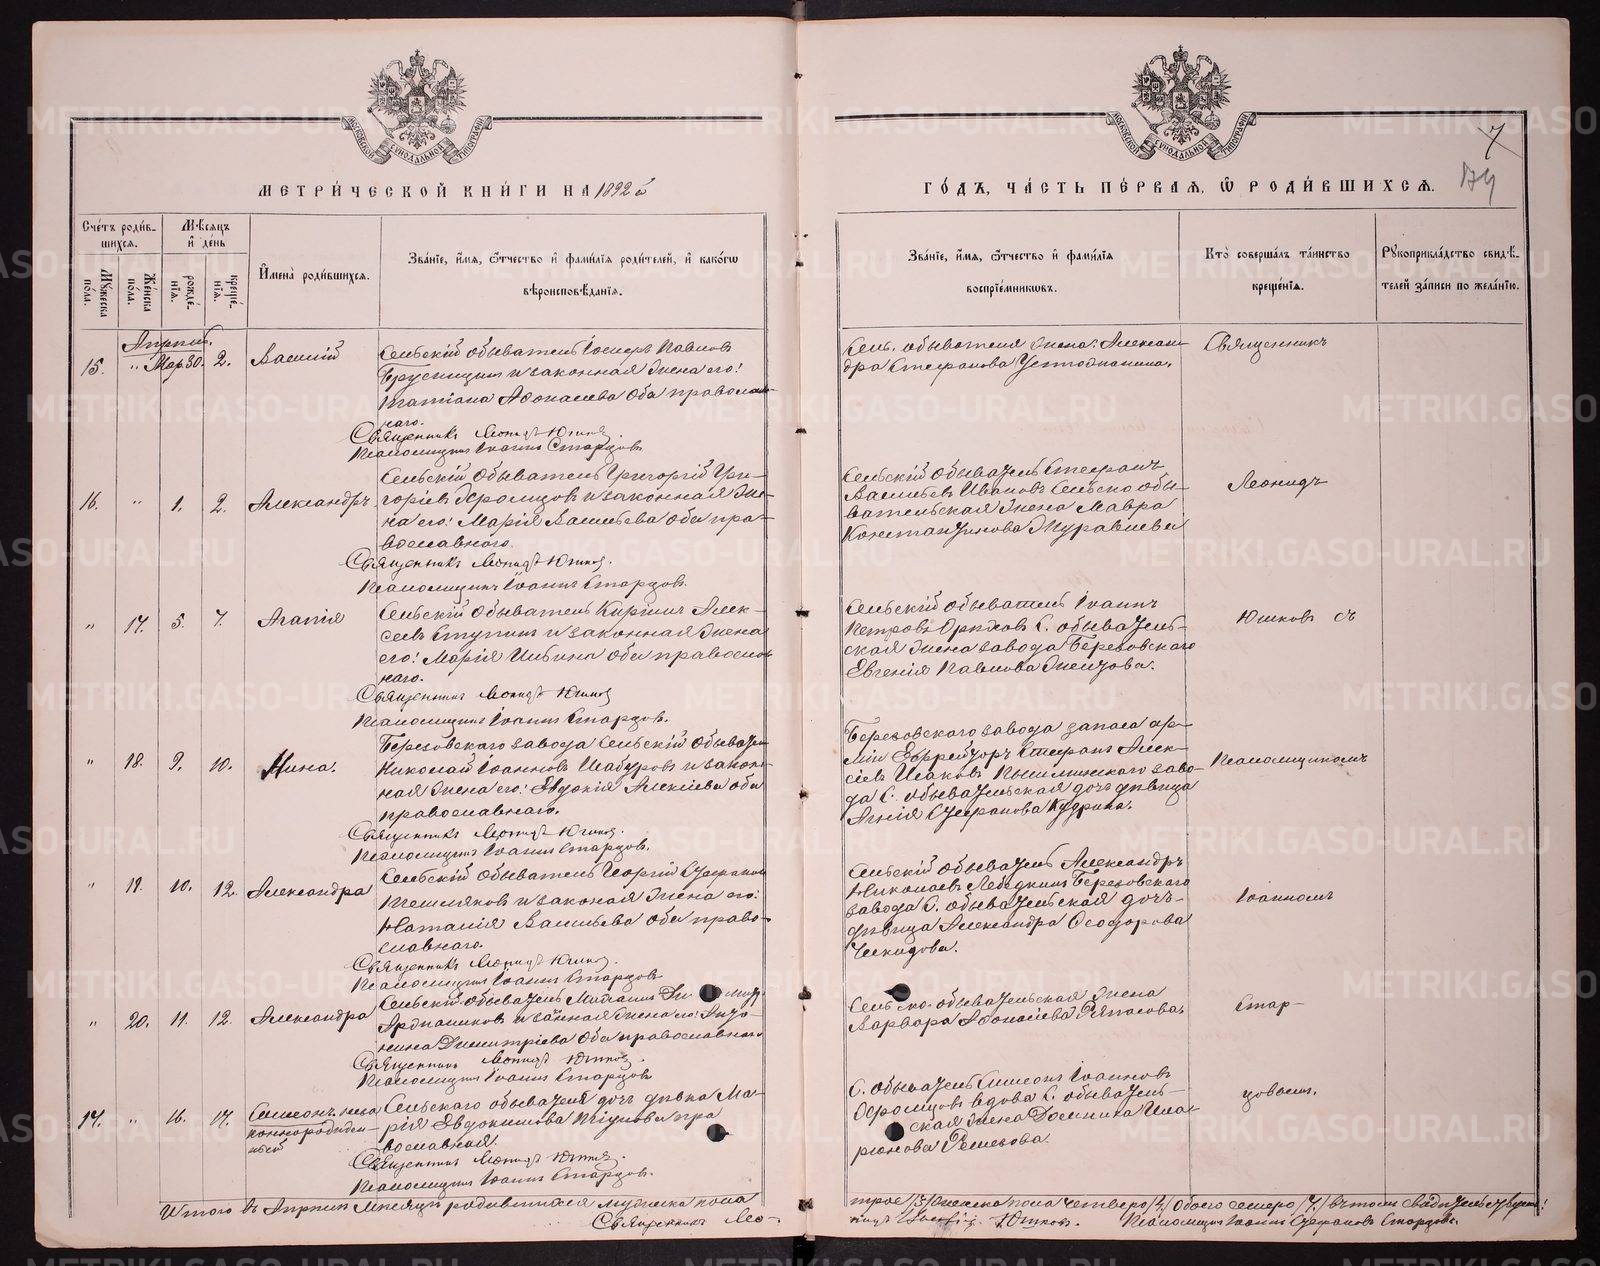 МЕТРИ́ЧЕСКОЙ КНИ́ГИ НА 1892 й
ГО́ДЪ, ЧА́СТЬ ПЕ́РВАЯ, Ѿ РОДИ́ВШИХСЯ.
7
Сче́тъ роди́в-
шихся.
Му́жеска
по́ла.
Же́нска
по́ла.
Мѣ́сяцъ
и҆ де́нь
рожде́-
нія.
креще́-
нія.
И҆мена̀ роди́вшихся.
Зва́ніе, и҆́мя, ѻ҆́тчество и҆ фами́лія роди́телей, и҆ како́гω
вѣроисповѣ́данія.
Зва́ніе, и҆́мя, ѻ҆́тчество и҆ фами́лія
воспріе́мниковъ.
Кто̀ соверша́лъ та́инство
креще́нія.
Рꙋкоприкла́дство свидѣ́-
телей за́писи по жела́нію.
Апрѣль.
15. " Мар. 30. 2. Василій
Сельскій обыватель Іосифъ Павловъ
Брусницынъ и законная жена его:
Татіана Афонасьева оба православ-
наго.
Священникъ Леонидъ Юшковъ
Псаломщикъ Іоаннъ Старцовъ
Сель. обывателя жена: Алексан-
дра Стефанова
Священникъ
16. " 1. 2. Александръ
Сельскій обыватель Григорій Гри-
горіевъ Хромцовъ и законная же-
на его: Марія Васильева оба пра-
вославнаго.
Священникъ Леонидъ Юшковъ.
Псаломщикъ Іоаннъ Старцовъ.
Сельскій обыватель Стефанъ
Васильевъ Ивановъ Сельско обы-
вательская жена Мавра
Константинова Журавлева
Леонидъ
" 17. 5. 7. Агапія
Сельскій обыватель Кириллъ Алек-
сеевъ Ступинъ и законная жена
его: Марія Ильина оба православ
наго.
Священникъ Леонидъ Юшковъ
Псаломщикъ Іоаннъ Старцовъ.
Сельскій обыватель Іоаннъ
Петровъ Орловъ С. обыватель-
ская жена завода Березовскаго
Евгенія Павлова
Юшковъ съ
" 18. 9. 10. Нина.
Березовскаго завода Сельскій обыватель
Николай Іоанновъ Шабуровъ и закон-
ная жена его: Евдокія Алексіева оба
православнаго.
Священникъ Леонидъ Юшковъ.
Псаломщикъ Іоаннъ Старцовъ.
Березовскаго завода запаса ар-
міи Ефрейторъ Стефанъ Алек-
сіевъ Исаковъ Пышминскаго заво-
да С. обывательская дочь дѣвица
Агнія Стефанова Кудрина.
Псаломщикомъ
" 19. 10. 12. Александра
Сельскій обыватель Георгій Стефановъ
Тешляковъ и законая жена его:
Наталія Васильева оба право-
славнаго.
Священникъ Леонидъ Юшковъ.
Псаломщикъ Іоаннъ Старцовъ
Сельскій обыватель Александръ
Николаевъ Лебедкинъ Березовскаго
завода С. обывательская дочь-
дѣвица Александра Ѳеодорова
Іоанномъ
" 20. 11. 12. Александра
Сельскій обыватель
и законная жена его: Анто-
нина Димитріева оба православнаго
Священникъ Леонидъ Юшковъ.
Псаломщикъ Іоаннъ Старцовъ
Сельско-обывательская жена
Варвара Афонасіева Ряпасова.
Стар-
17. " 16. 17. Симеонъ неза
коннорожден-
ный
Сельскаго обывателя дочь дѣвка Ма-
рія Евдокимова пра
вославная.
Священникъ Леонидъ Юшковъ.
Псаломщикъ Іоаннъ Старцовъ.
С. обыватель Симеонъ Іоанновъ
Хромцовъ вдова С. обыватель-
ская жена Домника Ила-
ріонова
цовымъ.
Итого въ Апрѣлѣ мѣсяцѣ родившихся мужеска пола
трое /3/ женска пола четверо /4/ обоего семеро /7/ въ томъ
Священникъ Лео-
нидъ Юшковъ. Псаломщикъ Іоаннъ Стефановъ Старцовъ.
METRIKI.GASO-URAL.RU